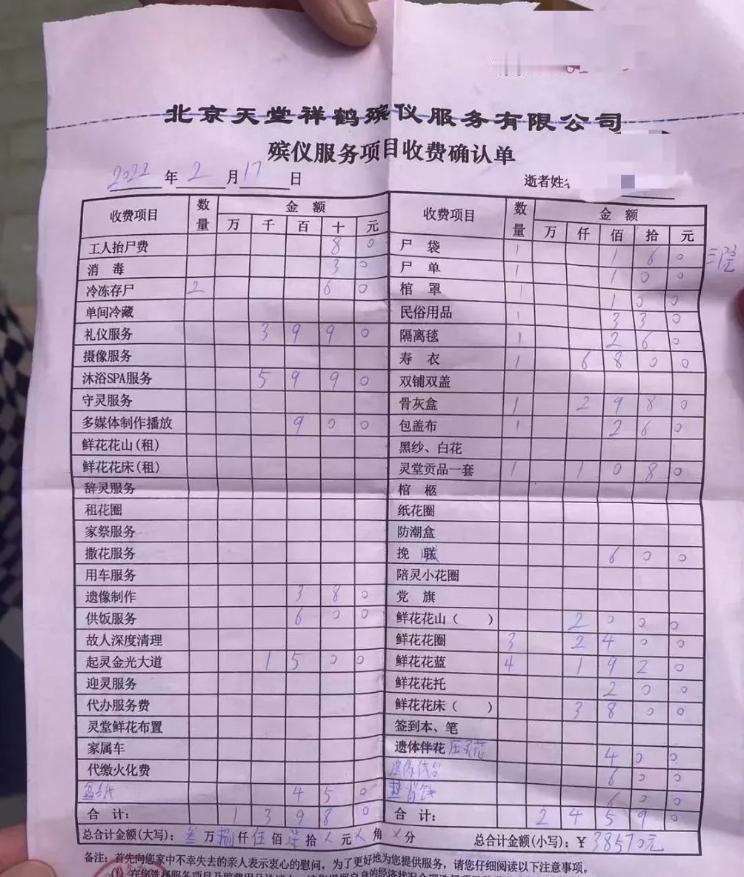 北京天堂祥鹤殡仪服务有限公司
殡仪服务项目收费确认单
2022 年 2 月 17 日 逝者姓
收费项目 数量 金额 万 千 百 十 元
工人抬尸费 8 0
消毒 3 0
冷冻存尸 2 6 0
单间冷藏
礼仪服务 3 9 9 0
摄像服务
沐浴SPA服务 5 9 9 0
守灵服务
多媒体制作播放 9 0 0
鲜花花山(租)
鲜花花床(租)
辞灵服务
租花圈
家祭服务
撒花服务
用车服务
遗像制作 3 8 0
供饭服务 6 0 0
故人深度清理
起灵金光大道 1 5 0 0
迎灵服务
代办服务费
灵堂鲜花布置
家属车
代缴火化费
4 5 0
合计: 1 3 9 8 0
收费项目 数量 金额 万 仟 佰 拾 元
尸袋 1 1 6 0
尸单 1 1 0 0
棺罩 1 1 0 0
民俗用品 1 3 3 0
隔离毯 1 2 6 0
寿衣 1 6 8 0 0
双铺双盖
骨灰盒 1 2 9 8 0
包盖布 1 2 6 0
黑纱、白花
灵堂贡品一套 1 1 0 8 0
棺柩
纸花圈
防潮盒
挽联 6 0 0
陪灵小花圈
党旗
鲜花花山( ) 2 0 0 0
鲜花花圈 3 2 4 0 0
鲜花花蓝 4 1 9 2 0
鲜花花托 2 0 0
鲜花花床( ) 3 8 0 0
签到本、笔
遗体伴花 4 0 0
6 0 0
6 0 0
合计: 2 4 5 9 0
总合计金额(大写): 叁 万 捌 仟 伍 佰 柒 拾 元 角 分 总合计金额(小写): ¥ 38570元
备注: 首先向您家中不幸失去的亲人表示衷心的慰问,为了更好地为您提供服务,请您仔细阅读以下注意事项。